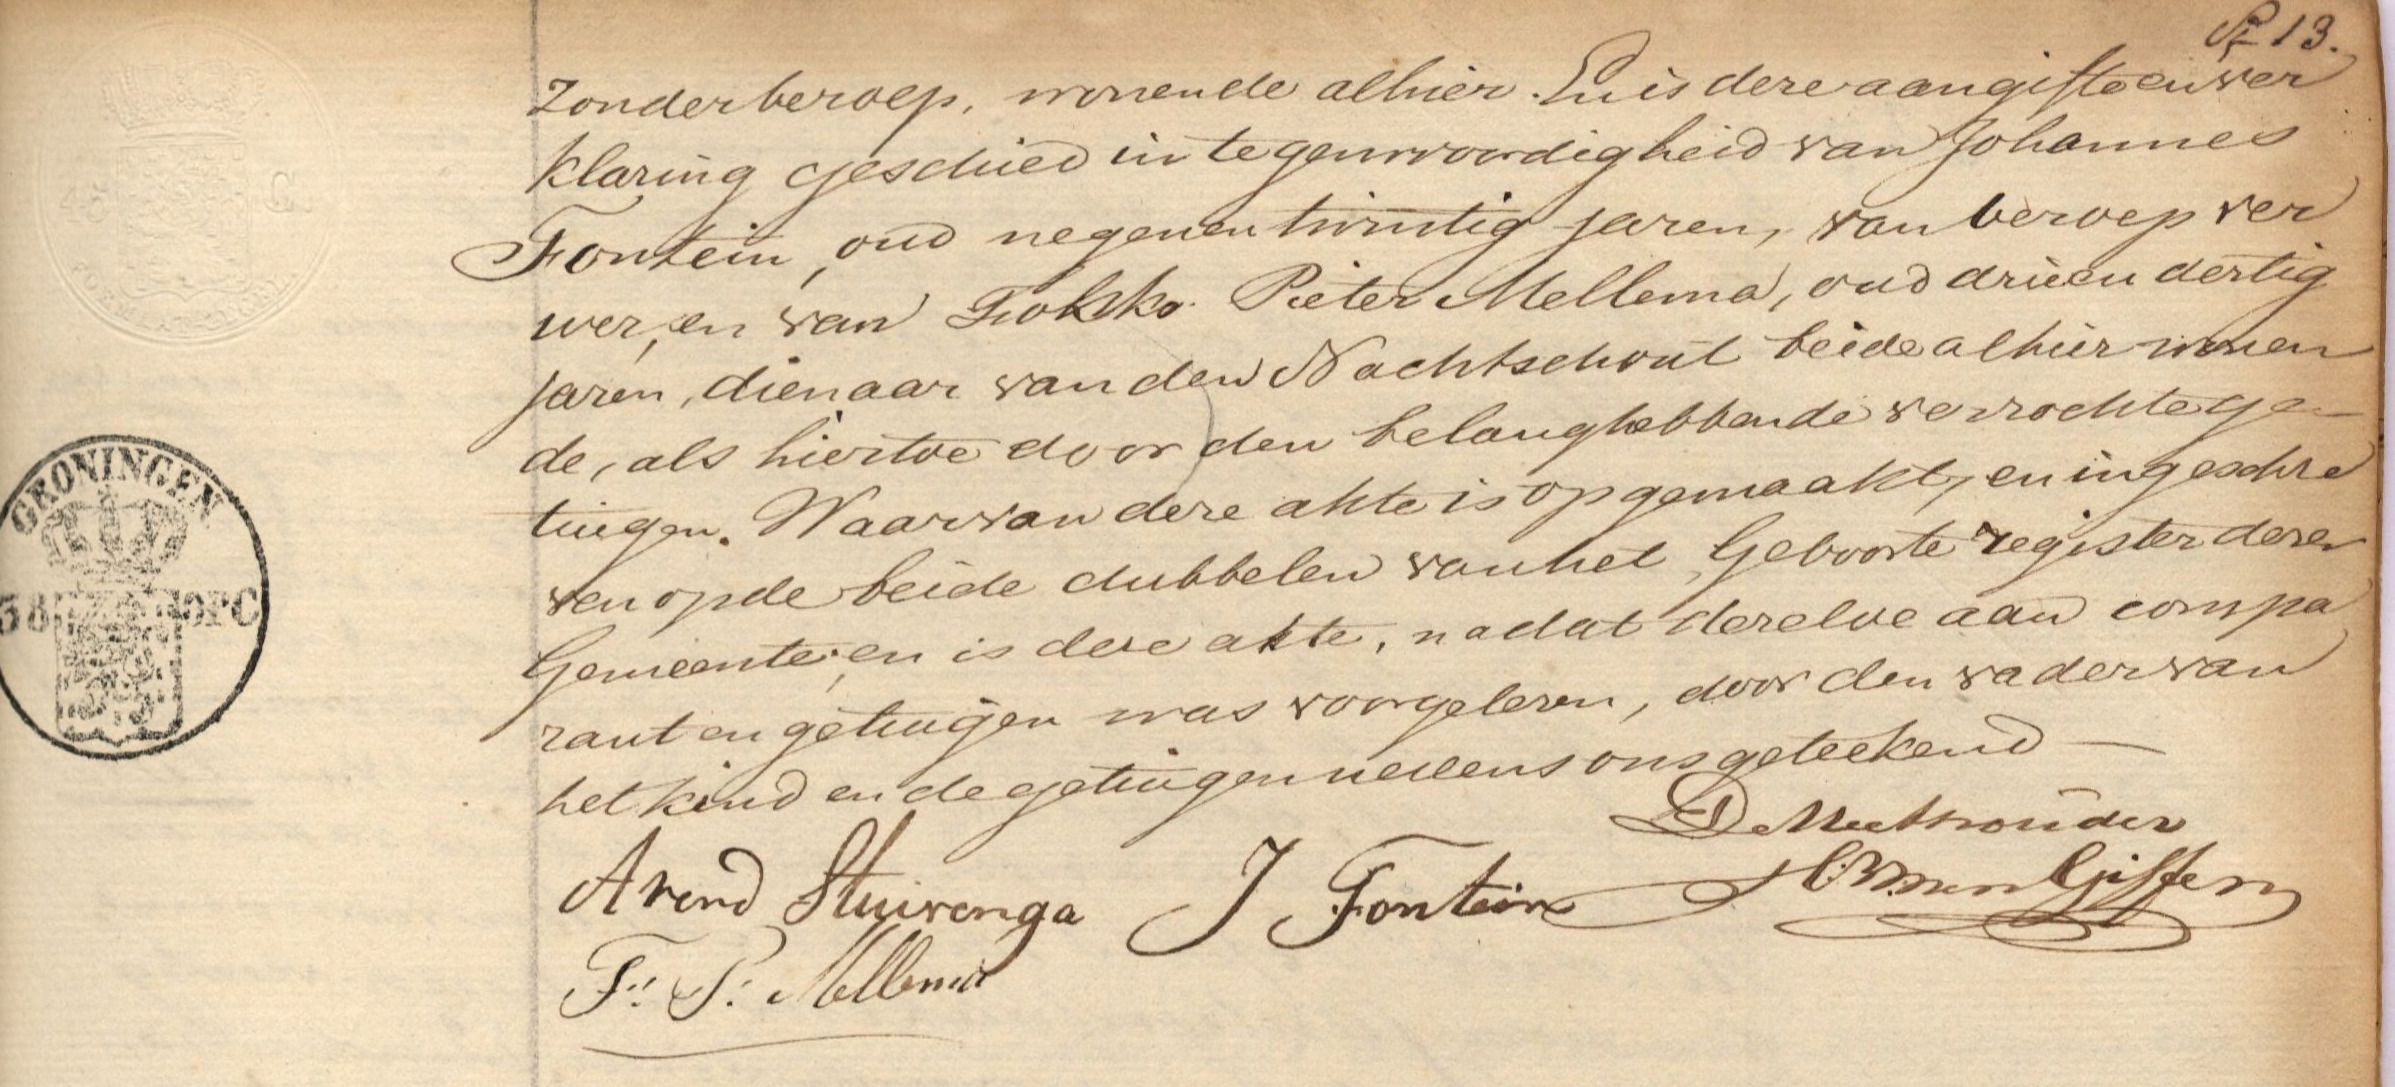 13.
Zonder beroep, wonende alhier. En is deze aangifte en ver
klaring geschied in tegenwoordigheid van Johannes
Fontein, oud negenentwintig jaren, van beroep ver
wer, en van Fokko Pieter Mellema, oud drieen dertig
jaren, dienaar van den Nachtschout beide alhier wonen
de, als hiertoe door den belanghebbende verzochte ge-
tuigen. Waarvan deze akte is opgemaakt, en ingeschre
ven op de beide dubbelen van het Geboorte register dezer
Gemeente; en is deze akte, nadat dezelve aan compa
rant en getuigen was voorgelezen, door den vader van
het kind en de getuigen nevens ons geteekend —
De Wethouder
Arend Stuivenga J Fontein van Giffen
F. P. Mellema
45 C.
GRONINGEN
38 OPC